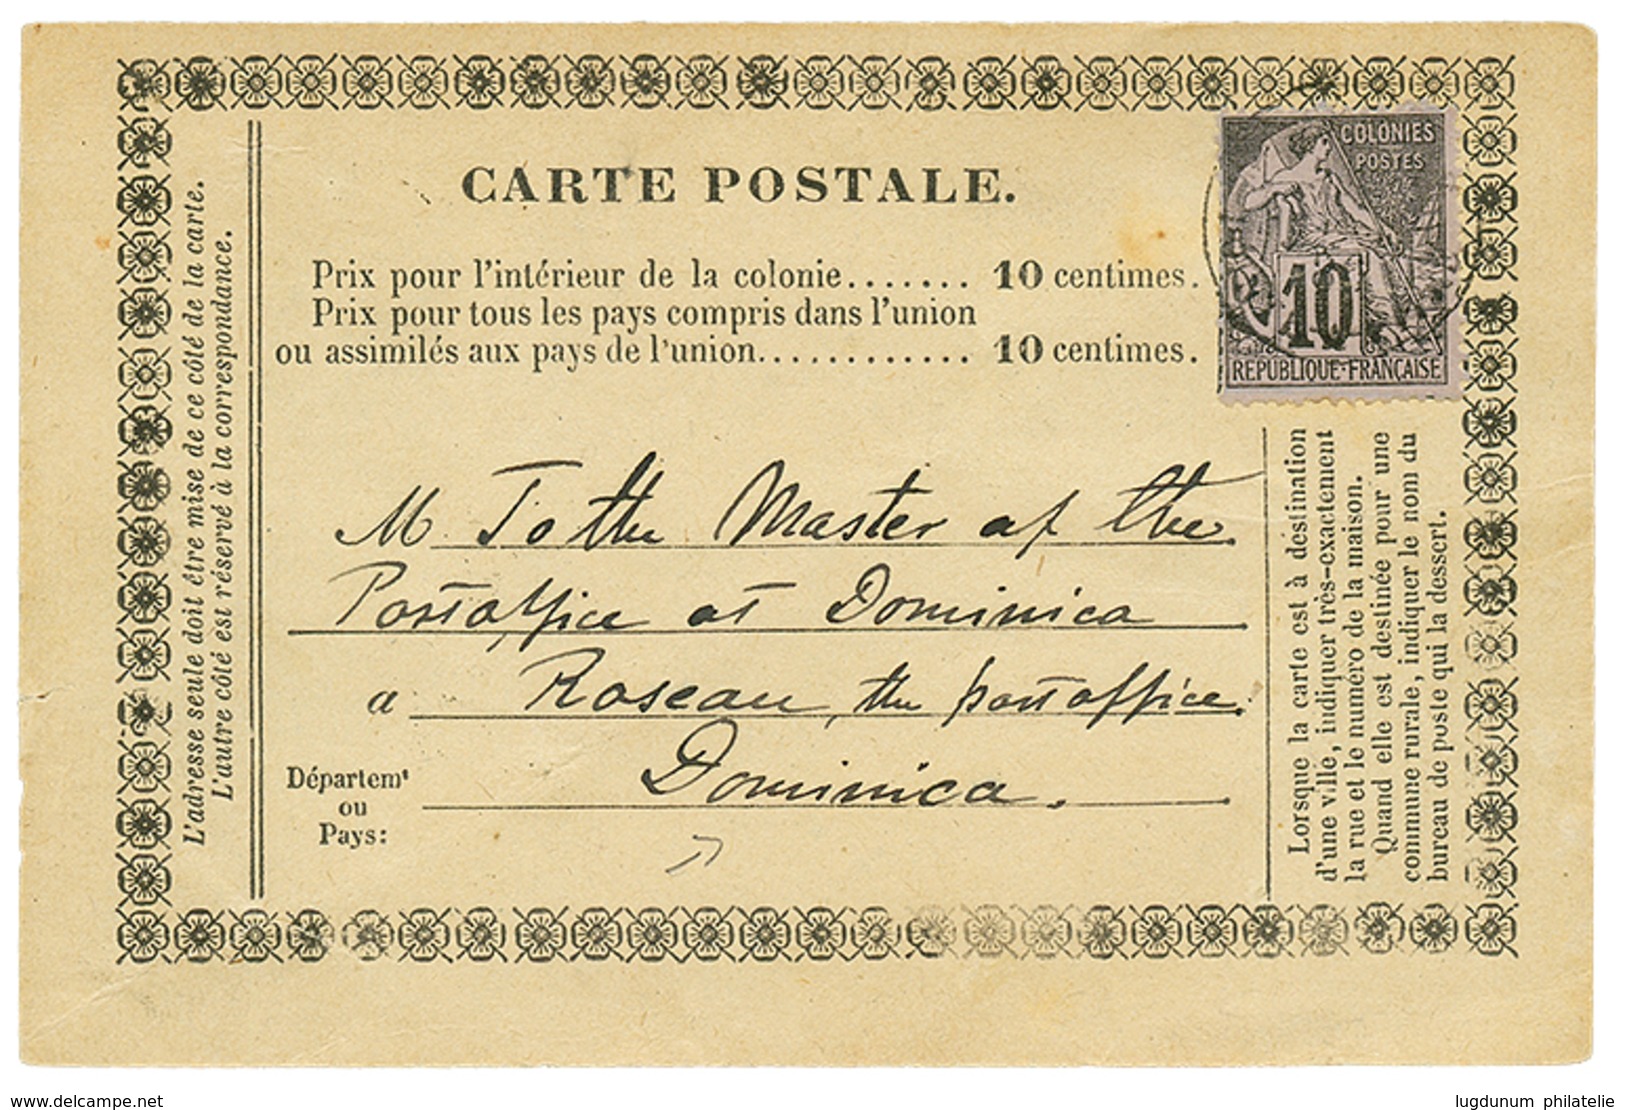 CARTE POSTALE.
COLONIES
POSTES
10
RÉPUBLIQUE-FRANÇAISE
Prix pour l'intérieur de la colonie....... 10 centimes.
Prix pour tous les pays compris dans l'union
ou assimilés aux pays de l'union............ 10 centimes.
L'adresse seule doit être mise de ce côté de la carte.
L'autre côté est réservé à la correspondance.
M To the Master of the
Postoffice at Dominica
a Roseau, the postoffice.
Départemt
ou
Pays:
Dominica.
Lorsque la carte est à déstination
d'une ville, indiquer très-exactement
la rue et le numéro de la maison.
Quand elle est destinée pour une
commune rurale, indiquer le nom du
bureau de poste qui la dessert.
www.delcampe.net
lugdunum philatelie